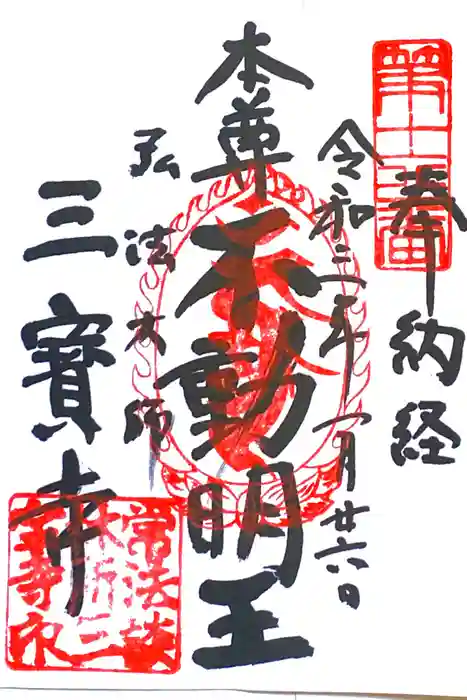 奉納経
第十二番
令和三年一月廿六日
本尊不動明王
弘法大師
三寳寺